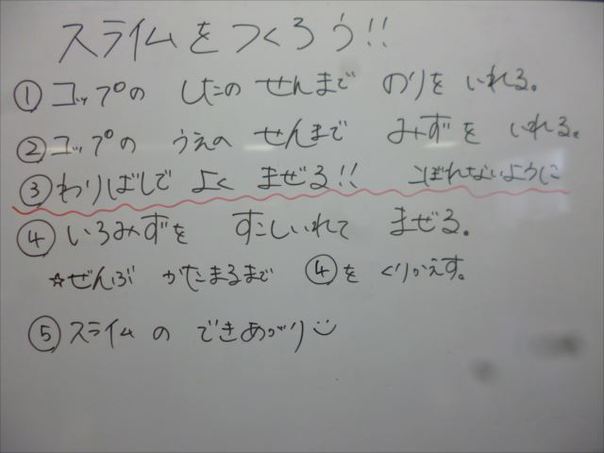 スライムをつくろう!!
① コップの したの せんまで のりを いれる。
② コップの うえの せんまで みずを いれる。
③ わりばしで よく まぜる!! こぼれないように
④ いろみずを すこしいれて まぜる。
☆ぜんぶ かたまるまで ④を くりかえす。
⑤ スライム の できあがり